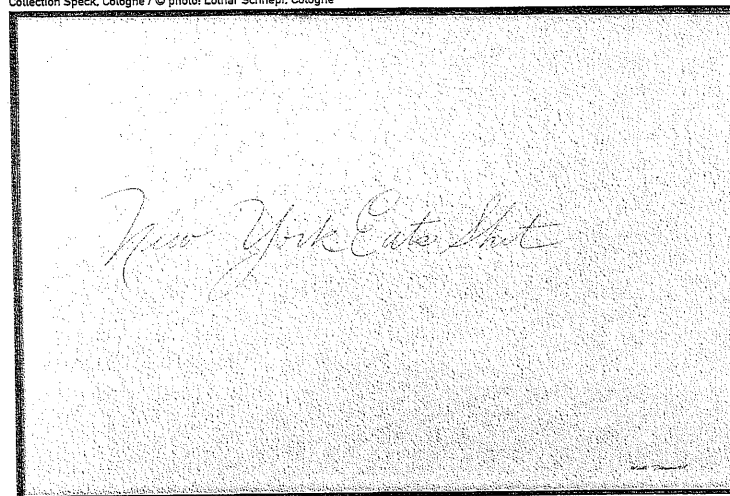 Collection Speck, Cologne / © photo: Lothar Schnepf, Cologne
New York Eats Shit